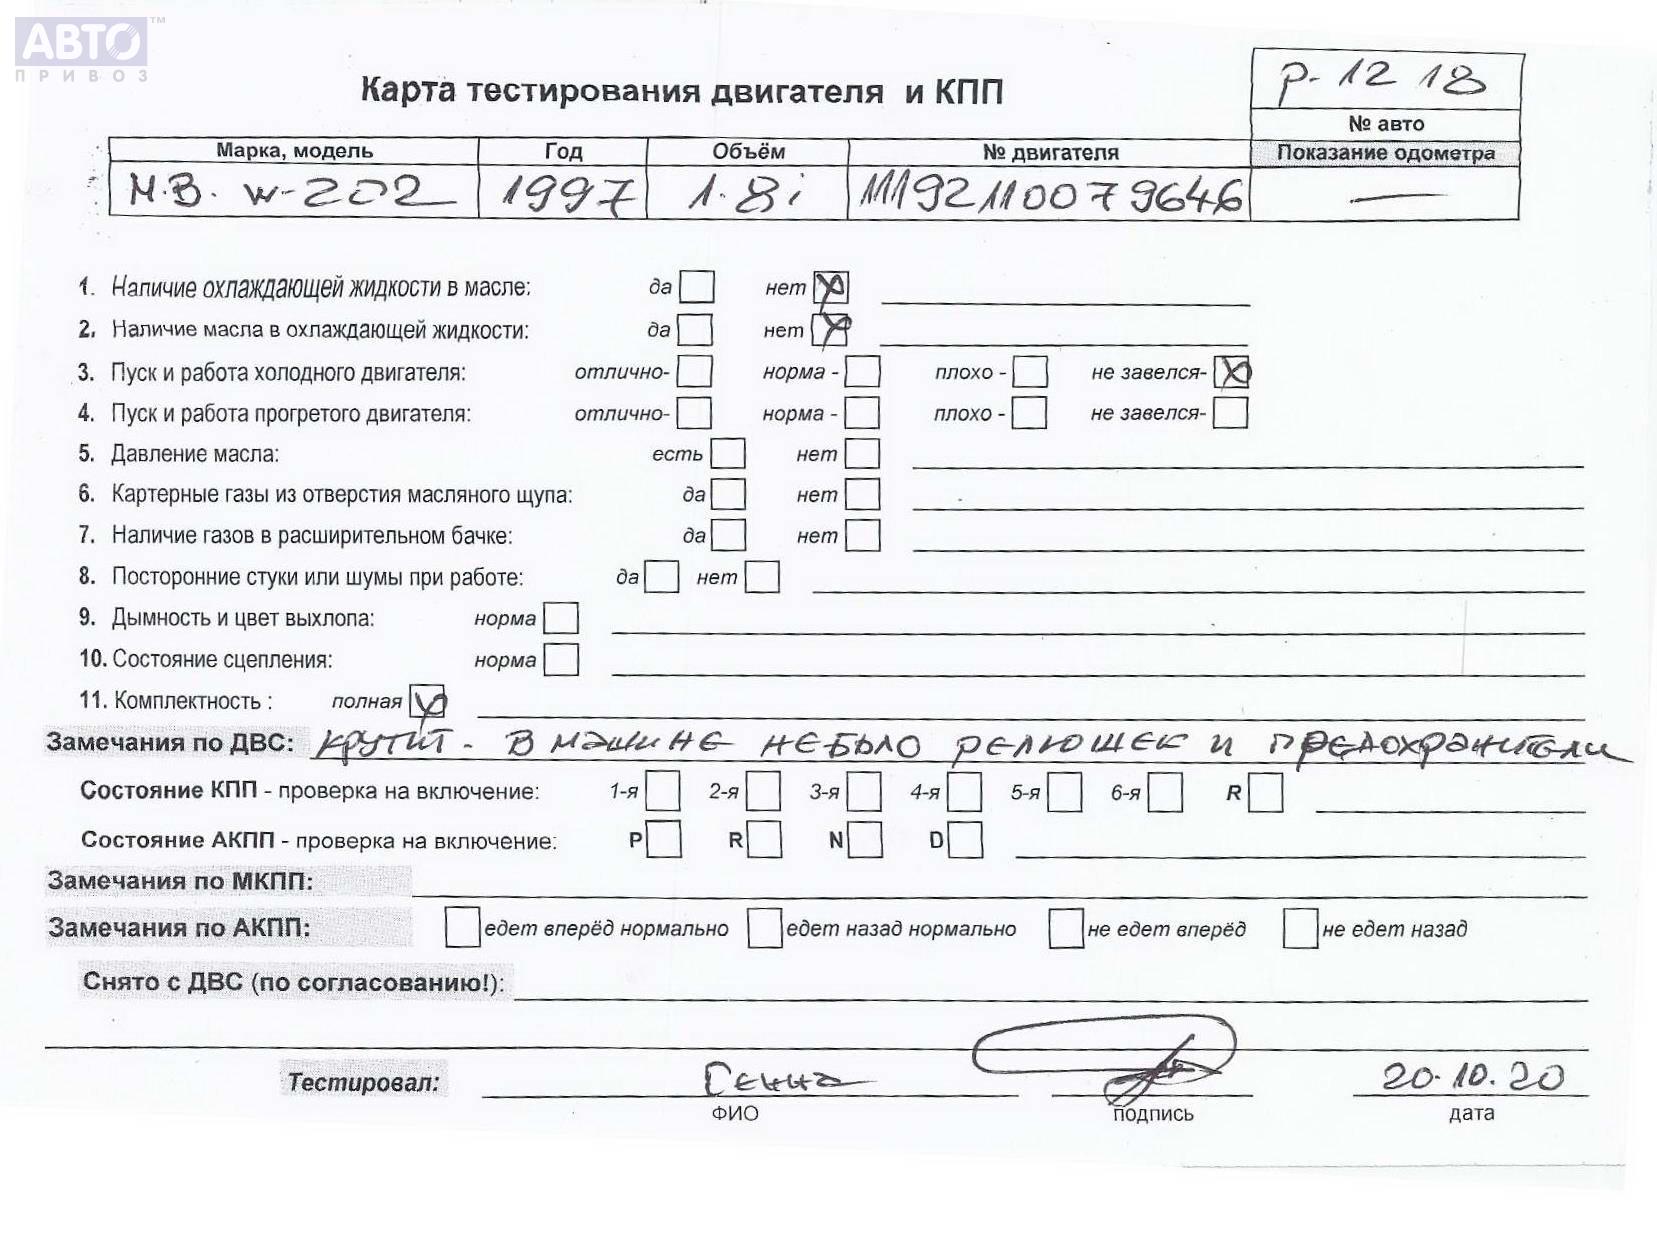 АВТО™
ПРИВОЗ
Карта тестирования двигателя и КПП
р-1218
№ авто
Марка, модель Год Объём № двигателя Показание одометра
M.B. w-202 1997 1.8i 11192110079646 —
1. Наличие охлаждающей жидкости в масле: да нет
2. Наличие масла в охлаждающей жидкости: да нет
3. Пуск и работа холодного двигателя: отлично- норма - плохо - не завелся-
4. Пуск и работа прогретого двигателя: отлично- норма - плохо - не завелся-
5. Давление масла: есть нет
6. Картерные газы из отверстия масляного щупа: да нет
7. Наличие газов в расширительном бачке: да нет
8. Посторонние стуки или шумы при работе: да нет
9. Дымность и цвет выхлопа: норма
10. Состояние сцепления: норма
11. Комплектность : полная
Замечания по ДВС: крутит - в машине небыло релюшек и предохранители
Состояние КПП - проверка на включение: 1-я 2-я 3-я 4-я 5-я 6-я R
Состояние АКПП - проверка на включение: P R N D
Замечания по МКПП:
Замечания по АКПП: едет вперёд нормально едет назад нормально не едет вперёд не едет назад
Снято с ДВС (по согласованию!):
Тестировал: Генна 20.10.20
ФИО подпись дата